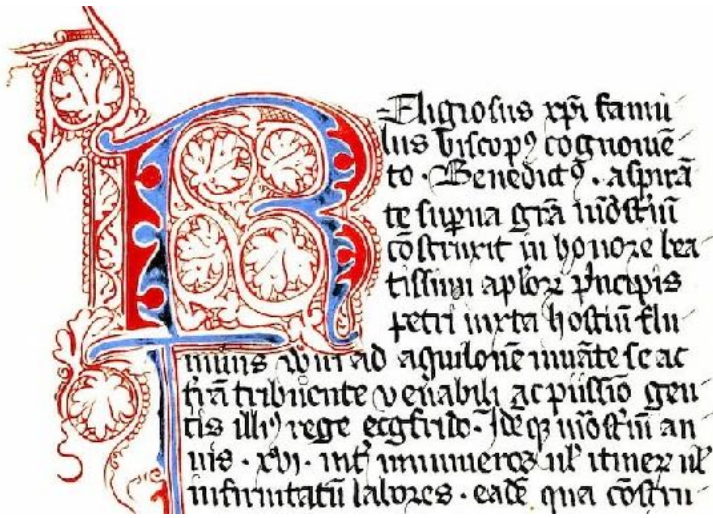 REligiosus xp̄i famu-
lus biscopꝰ cognomē-
to · Benedictꝰ · aspirā-
te sup̄na grā mōst̄iū
cōstruxit in honore bea-
tissimi aploꝝ p̄ncipis
petri iuxta hostiū flu-
minis wiri ad aquilonē iuuāte se ac
t̄rā tribuente venabili ac piissīo gen-
tis illiꝰ rege ecgfrido · Idēqꝫ mōst̄iū an-
nis · xvi · int̄ innumeros ul̓ itineꝝ ul̓
infirmitatū labores · eadē qua cōstru-